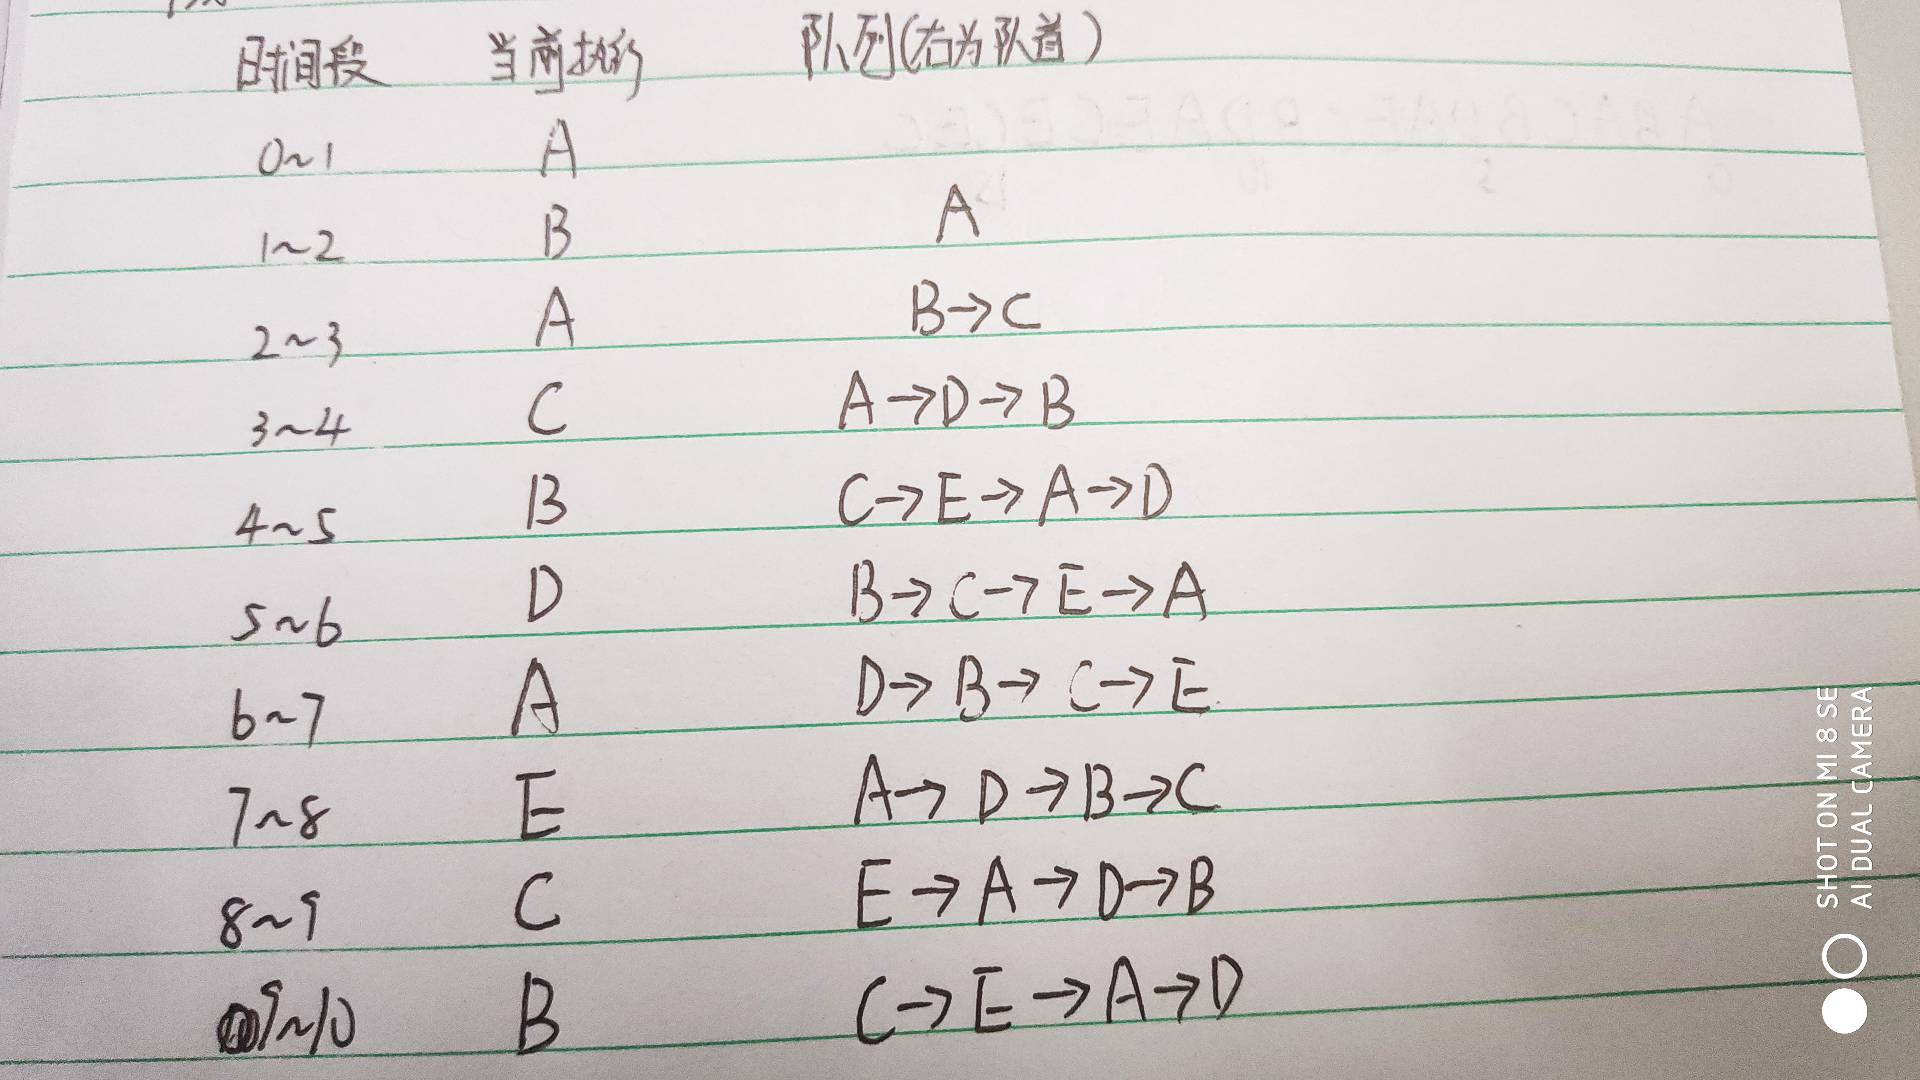 时间段 当前执行 队列(右为队首)
0~1 A
1~2 B A
2~3 A B→C
3~4 C A→D→B
4~5 B C→E→A→D
5~6 D B→C→E→A
6~7 A D→B→C→E
7~8 E A→D→B→C
8~9 C E→A→D→B
9~10 B C→E→A→D
SHOT ON MI 8 SE
AI DUAL CAMERA